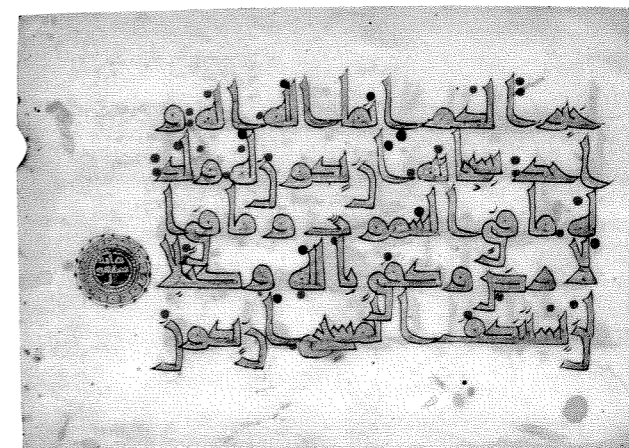 خيرا لكم انما الله اله و
احد سبحنه ان يكون له ولد
له ما في السموت و ما في ا
لارض وكفى بالله وكيلا
لن يستنكف المسيح ان يكون